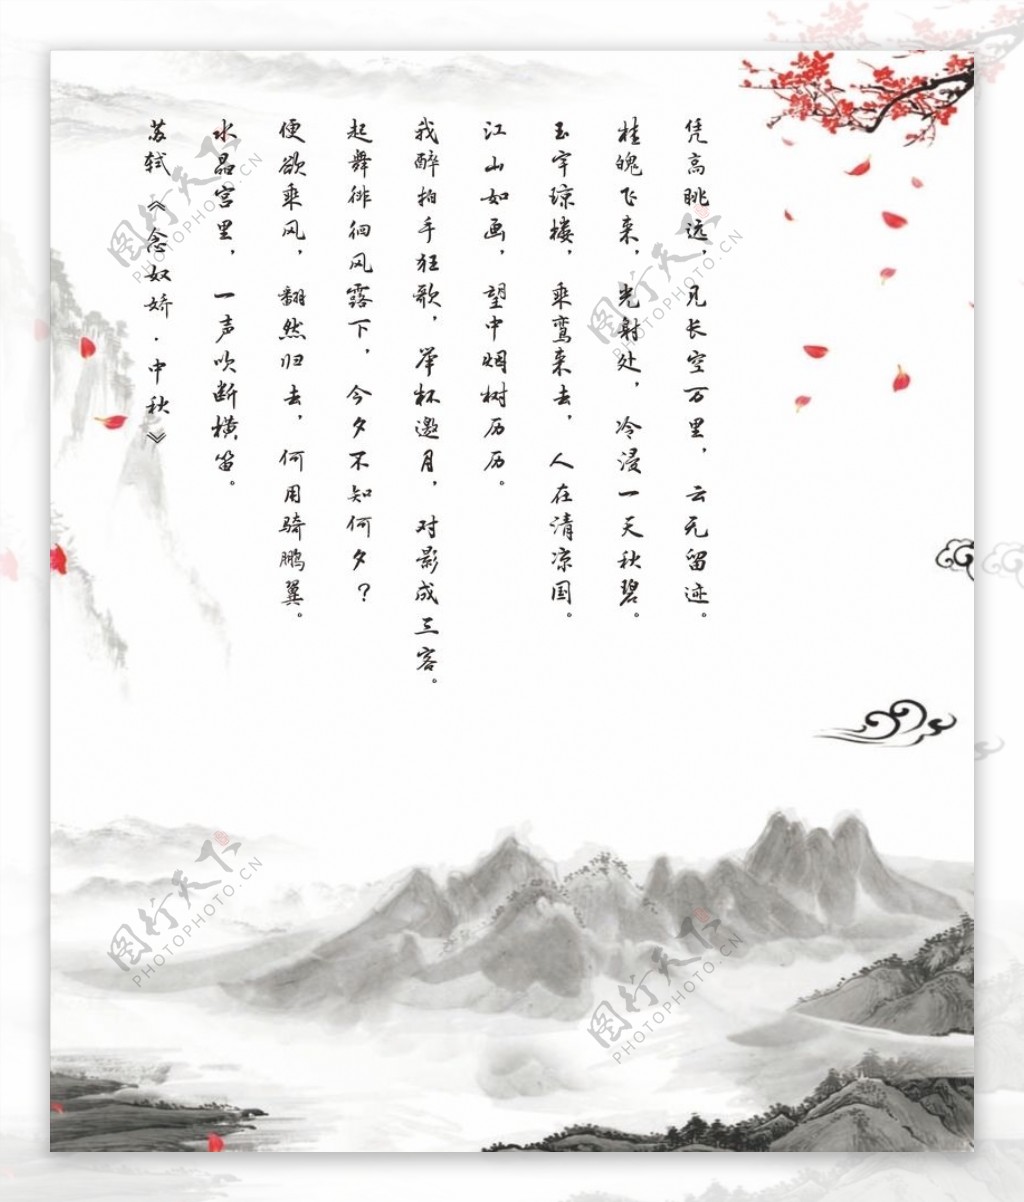 凭高眺远，见长空万里，云无留迹。
桂魄飞来，光射处，冷浸一天秋碧。
玉宇琼楼，乘鸾来去，人在清凉国。
江山如画，望中烟树历历。
我醉拍手狂歌，举杯邀月，对影成三客。
起舞徘徊风露下，今夕不知何夕？
便欲乘风，翻然归去，何用骑鹏翼。
水晶宫里，一声吹断横笛。
苏轼《念奴娇·中秋》
图行天下
PHOTOPHOTO.CN
图行天下
PHOTOPHOTO.CN
图行天下
PHOTOPHOTO.CN
图行天下
PHOTOPHOTO.CN